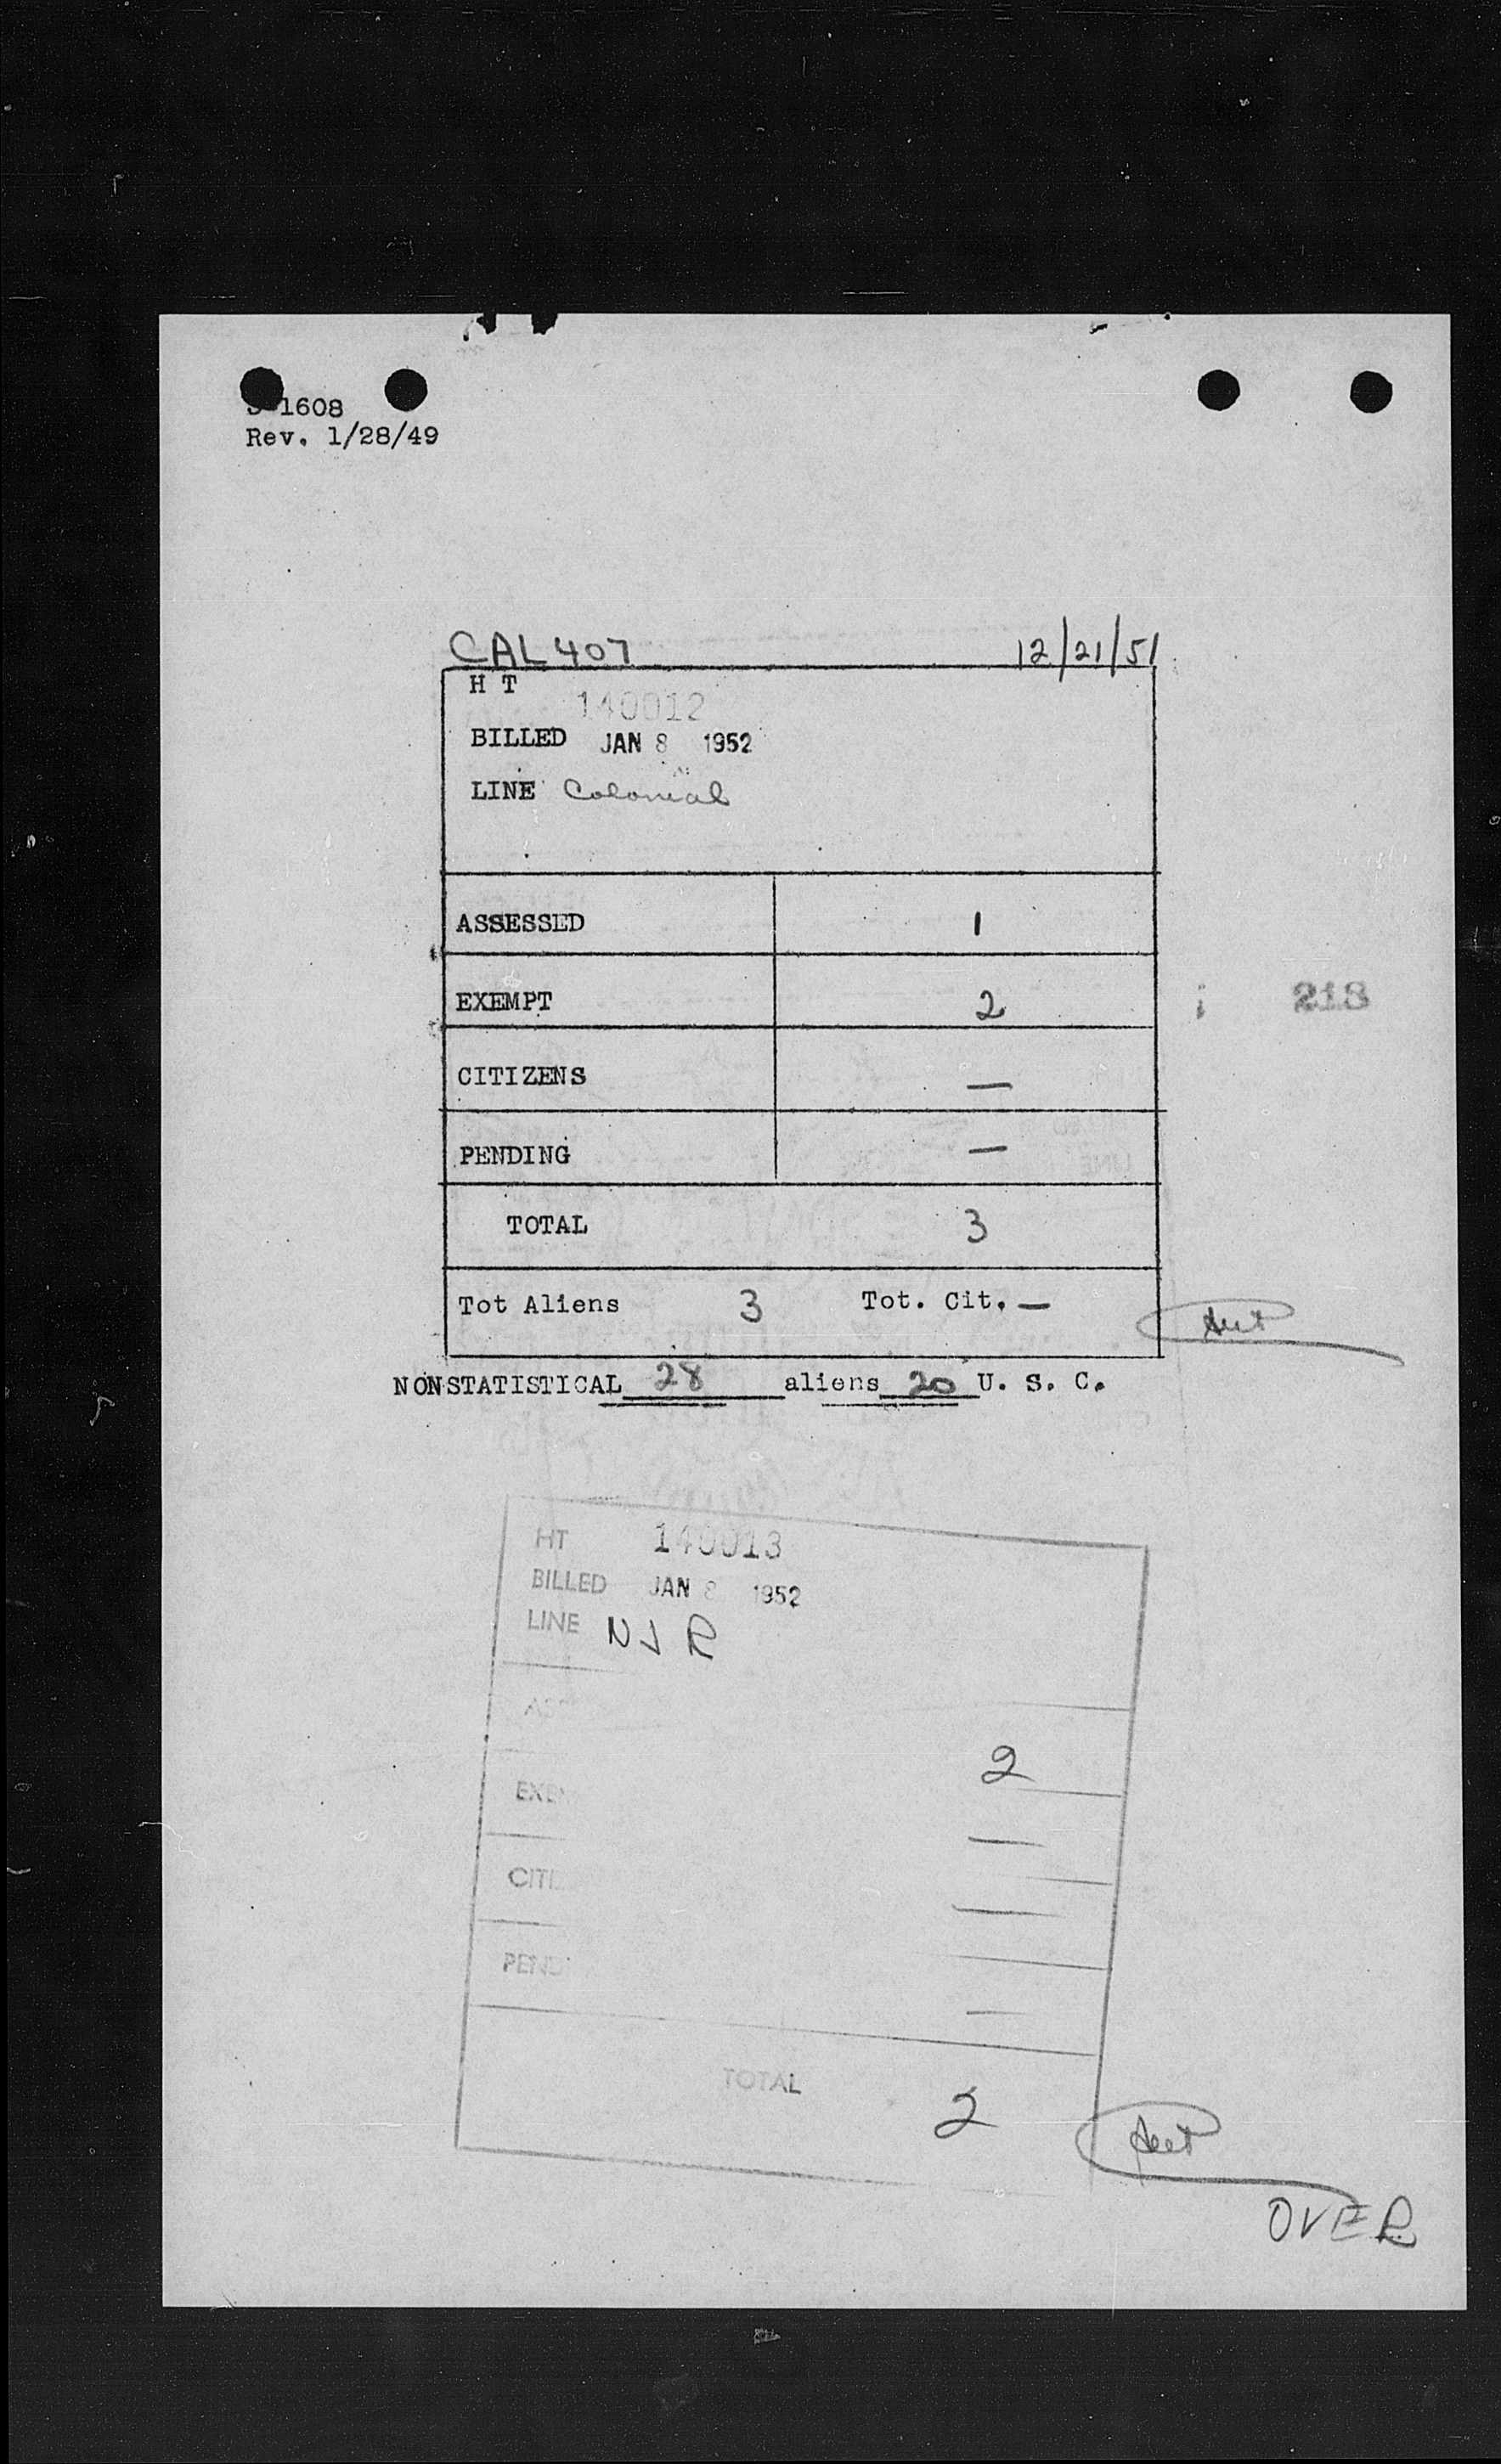 1608
Rev. 1/28/49
CAL 407 12/21/51
H T 140012
BILLED JAN 8 1952
LINE Colonial
ASSESSED 1
EXEMPT 2
218
CITIZENS —
PENDING —
TOTAL 3
Tot Aliens 3 Tot. Cit. —
NONSTATISTICAL 28 aliens 20 U. S. C.
HT 140013
BILLED JAN 8 1952
LINE NJR
2
—
—
—
TOTAL
2
OVER